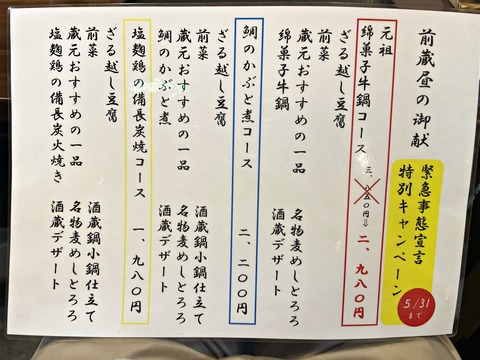 前蔵昼の御献
緊急事態宣言
特別キャンペーン
5/31
まで
元祖
綿菓子牛鍋コース 三、八五〇円⇒二、九八〇円
ざる越し豆腐
前菜
蔵元おすすめの一品 名物麦めしとろろ
綿菓子牛鍋 酒蔵デザート
鯛のかぶと煮コース 二、二〇〇円
ざる越し豆腐
前菜 酒蔵鍋小鍋仕立て
蔵元おすすめの一品 名物麦めしとろろ
鯛のかぶと煮 酒蔵デザート
塩麹鶏の備長炭焼コース 一、九八〇円
ざる越し豆腐
前菜 酒蔵鍋小鍋仕立て
蔵元おすすめの一品 名物麦めしとろろ
塩麹鶏の備長炭火焼き 酒蔵デザート